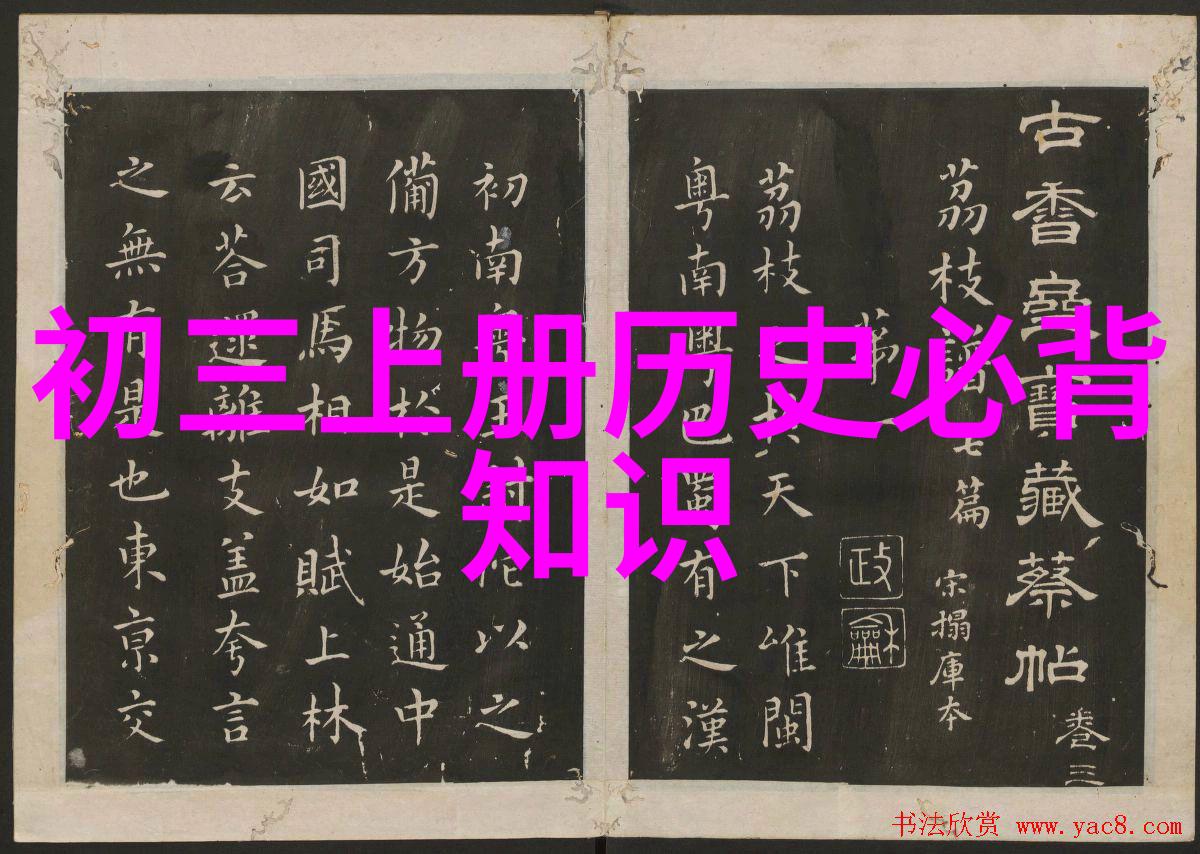 初三上册历史必背
知识
古香齋寶藏蔡帖
卷三
茘枝譜七篇
宋搨庫本
第一
政龢
茘枝之於天下唯閩
粤南粤巴蜀有之漢
初南粤王尉佗以之
備方物於是始通中
國司馬相如賦上林
云荅遝離支盖夸言
之無有是也東京交
书法欣赏 www.yac8.com